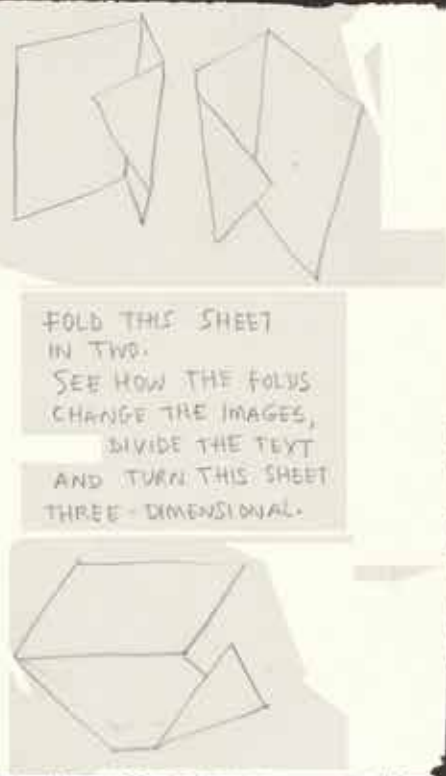 FOLD THIS SHEET
IN TWO.
SEE HOW THE FOLDS
CHANGE THE IMAGES,
DIVIDE THE TEXT
AND TURN THIS SHEET
THREE-DIMENSIONAL.